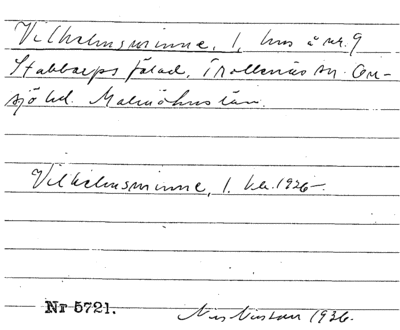 Vilhelmsminne, 1, hus å nr. 9
Stabbarps fälad, Trollenäs sn. On-
sjö hd. Malmöhus län.
Vilhelmsminne, 1. 1926
Nr 5721.
1936.